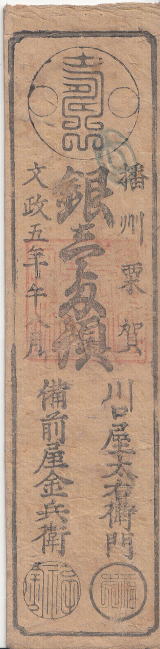 播州粟賀
銀壱匁預
文政五年午八月
川口屋太右衛門
備前屋金兵衛